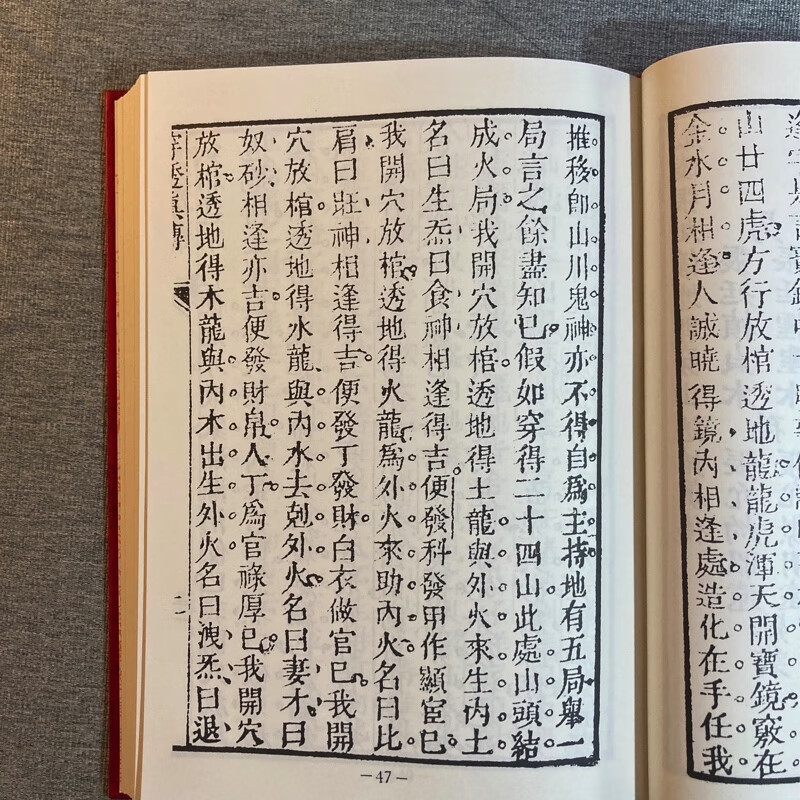 山廿四虎方行放棺透地龍龍虎渾天開寶鏡竅在
金水月相逢人誠曉得鏡內相逢處造化在手任我
推移即山川鬼神亦不得自爲主持地有五局舉一
局言之餘盡知已假如穿得二十四山此處山頭結
成火局我開穴放棺透地得土龍與外火來生內土
名曰生炁曰食神相逢得吉便發科發甲作顯宦已
我開穴放棺透地得火龍爲外火來助內火名曰比
肩曰旺神相逢得吉便發丁發財白衣做官已我開
穴放棺透地得水龍與內水去剋外火名曰妻才曰
奴砂相逢亦吉便發財帛人丁爲官祿厚已我開穴
放棺透地得木龍與內木出生外火名曰洩炁曰退
穿透眞傳
二
—47—